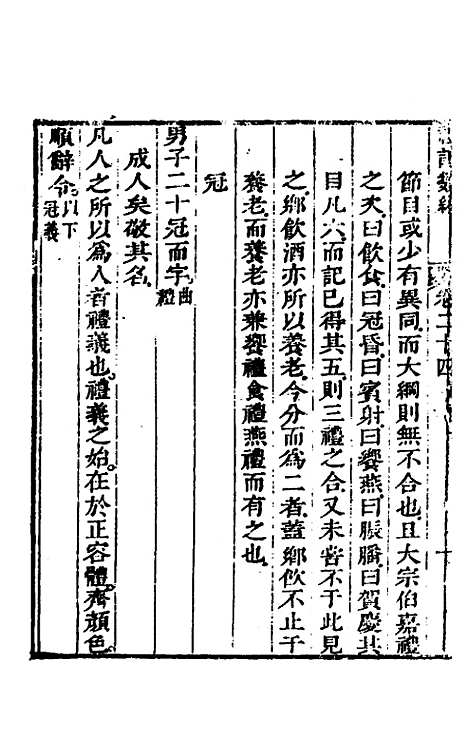 禮記類編 卷二十四
節目或少有異同而大綱則無不合也且大宗伯嘉禮
之夫曰飲食曰冠昏曰賓射曰饗燕曰脤膰曰賀慶其
目凡六而記已得其五則三禮之合又未嘗不于此見
之鄉飲酒亦所以養老今分而為二者蓋鄉飲不止于
養老而養老亦兼饗禮食禮燕禮而有之也
冠
男子二十冠而字曲禮
成人矣敬其名
凡人之所以為人者禮義也禮義之始在於正容體齊顏色
順辭令以下冠義